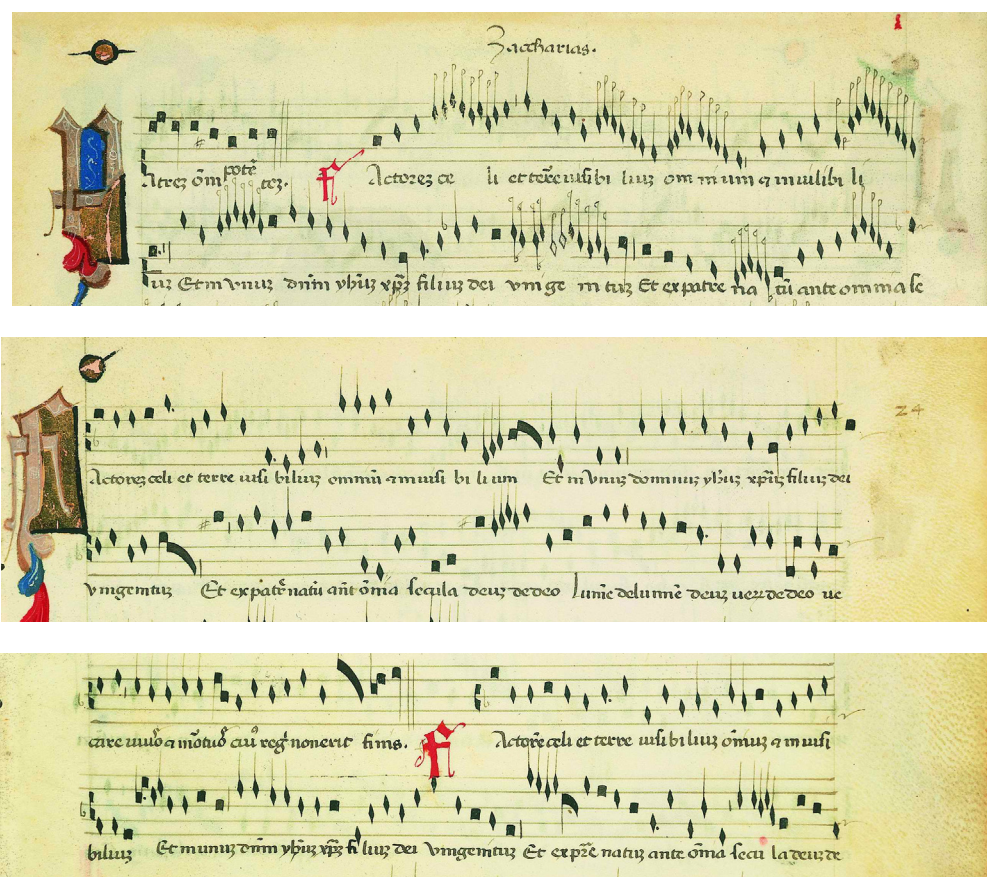 Zaccharias.
Patrez om̄ potē tez. fi Actorez ce li et terre uisi bi liuz om ni um ⁊ in uisibi li
uz Et in vnuz dn̄m yh̄uz xp̄z filiuz dei vni ge ni tuz Et ex patre na tū ante omnia se
Actorez celi et terre uisi biliuz omniū ⁊ inuisi bi li um Et in vnuz dominuz yh̄uz xp̄uz filiuz dei
vnigenituz Et ex patrē natū ant̄ om̄ia secula deuz de deo lumē de lumīe deuz uerz de deo ue
care uiuo ⁊ fi nis. fi Actorē celi et terre uisi biliuz om̄iuz ⁊ in uisi
biliuz Et in unuz dn̄m yh̄uz xp̄z fi liuz dei vnigenituz Et ex pr̄e natuz ante om̄ia secu la deuz de
24